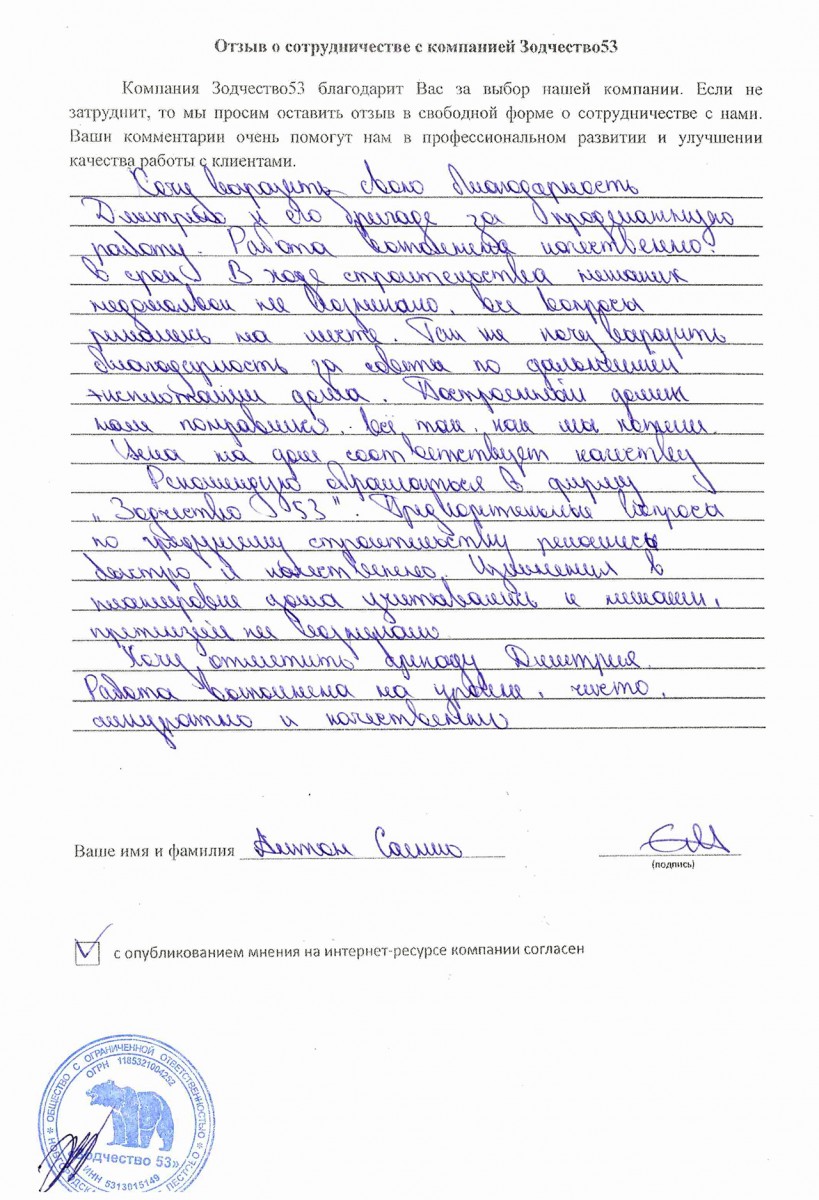 Отзыв о сотрудничестве с компанией Зодчество53
Компания Зодчество53 благодарит Вас за выбор нашей компании. Если не
затруднит, то мы просим оставить отзыв в свободной форме о сотрудничестве с нами.
Ваши комментарии очень помогут нам в профессиональном развитии и улучшении
качества работы с клиентами.
Хочу выразить свою благодарность
Дмитрию и его бригаде за проделанную
работу. Работа выполнена качественно.
В срок. В ходе строительства никаких
недомолвок не возникало, все вопросы
решались на месте. Так же хочу выразить
благодарность за советы по дальнейшей
эксплотации дома. Построенный домик
нам понравился, всё так, как мы хотели.
Цена на дом соответствует качеству
Рекомендую обращаться в фирму
„Зодчество 53". Предворительные вопросы
по грядущему строительству решались
быстро и качественно. Изменения в
планировке дома учитывались и
претензий не возникало.
Хочу отметить бригаду Дмитрия.
Работа выполнена на уровне, чисто,
аккуратно и качественно
Ваше имя и фамилия Антон
(подпись)
с опубликованием мнения на интернет-ресурсе компании согласен
ОБЩЕСТВО С ОГРАНИЧЕННОЙ ОТВЕТСТВЕННОСТЬЮ
ОГРН 1185321004252
«Зодчество 53»
ИНН 5313015149